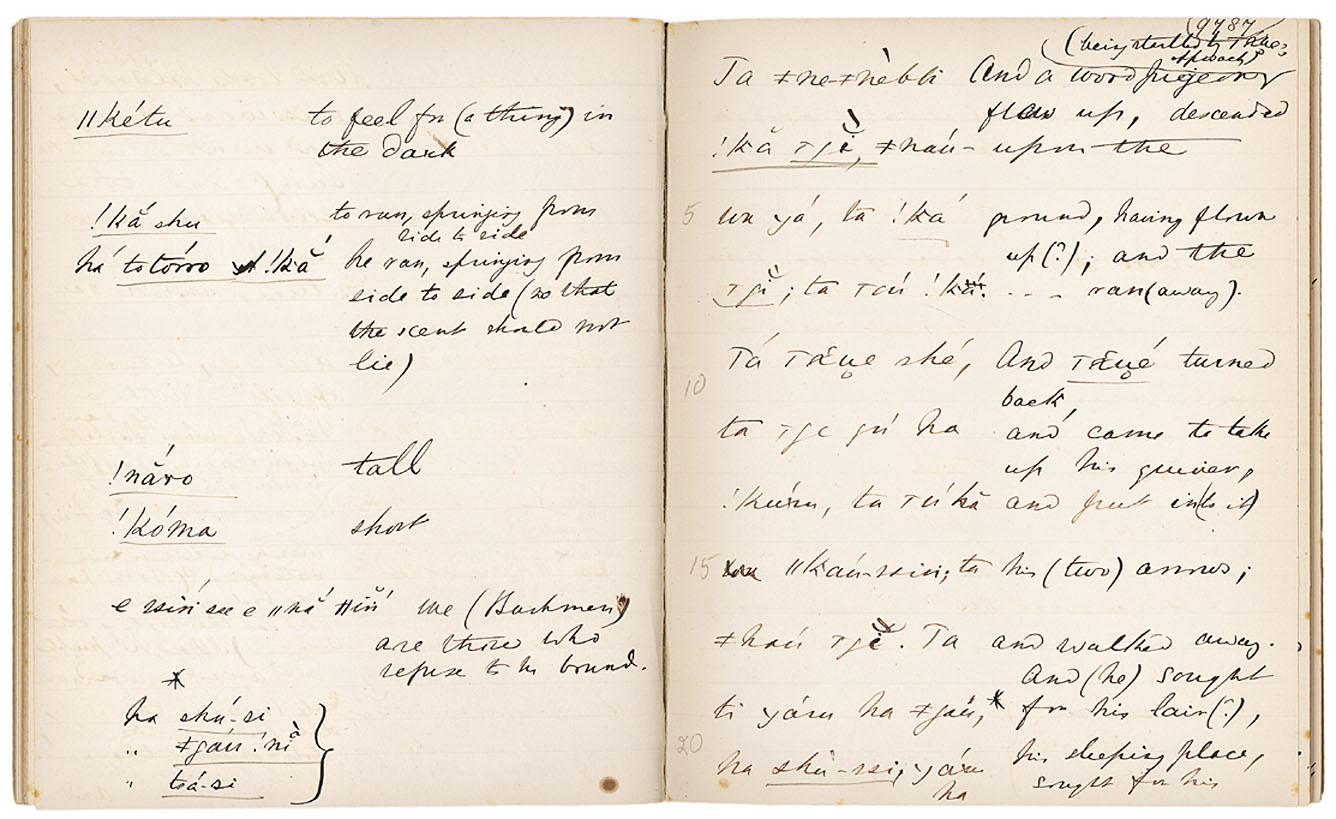 ǁkétu to feel for (a thing) in
the dark
!kắ shu to run, springing from
side to side
há totórro !kắ he ran, springing from
side to side (so that
the scent should not
lie)
!nắro tall
!kóma short
e ssíń see e ǁnắ ǁĭń we (Bushmen)
are those who
refuse to be bound.
*
ha shú-si
" ǂgáú !nĭ̀
" tsá-si
9787
(being startled by
approach)
Ta ǂne-ǂnèbbi And a wood pigeon
flew up, descended
!kă ǂnáú- upon the
5 un yá, ta !ká ground, having flown
up(?); and the
; ta !ká. ... ran (away).
Tá shé, And turned
10 back,
ta gú ha and came to take
up his quiver,
!kúru, ta and put in(to it)
15 ǁkáú-ssin; ta his (two) arrows;
ǂháú . Ta and walked away.
And (he) sought
ti yáru ha ǂgáú,* for his lair(?),
20 ha shú-ssi, yáru his sleeping place,
ha sought for his